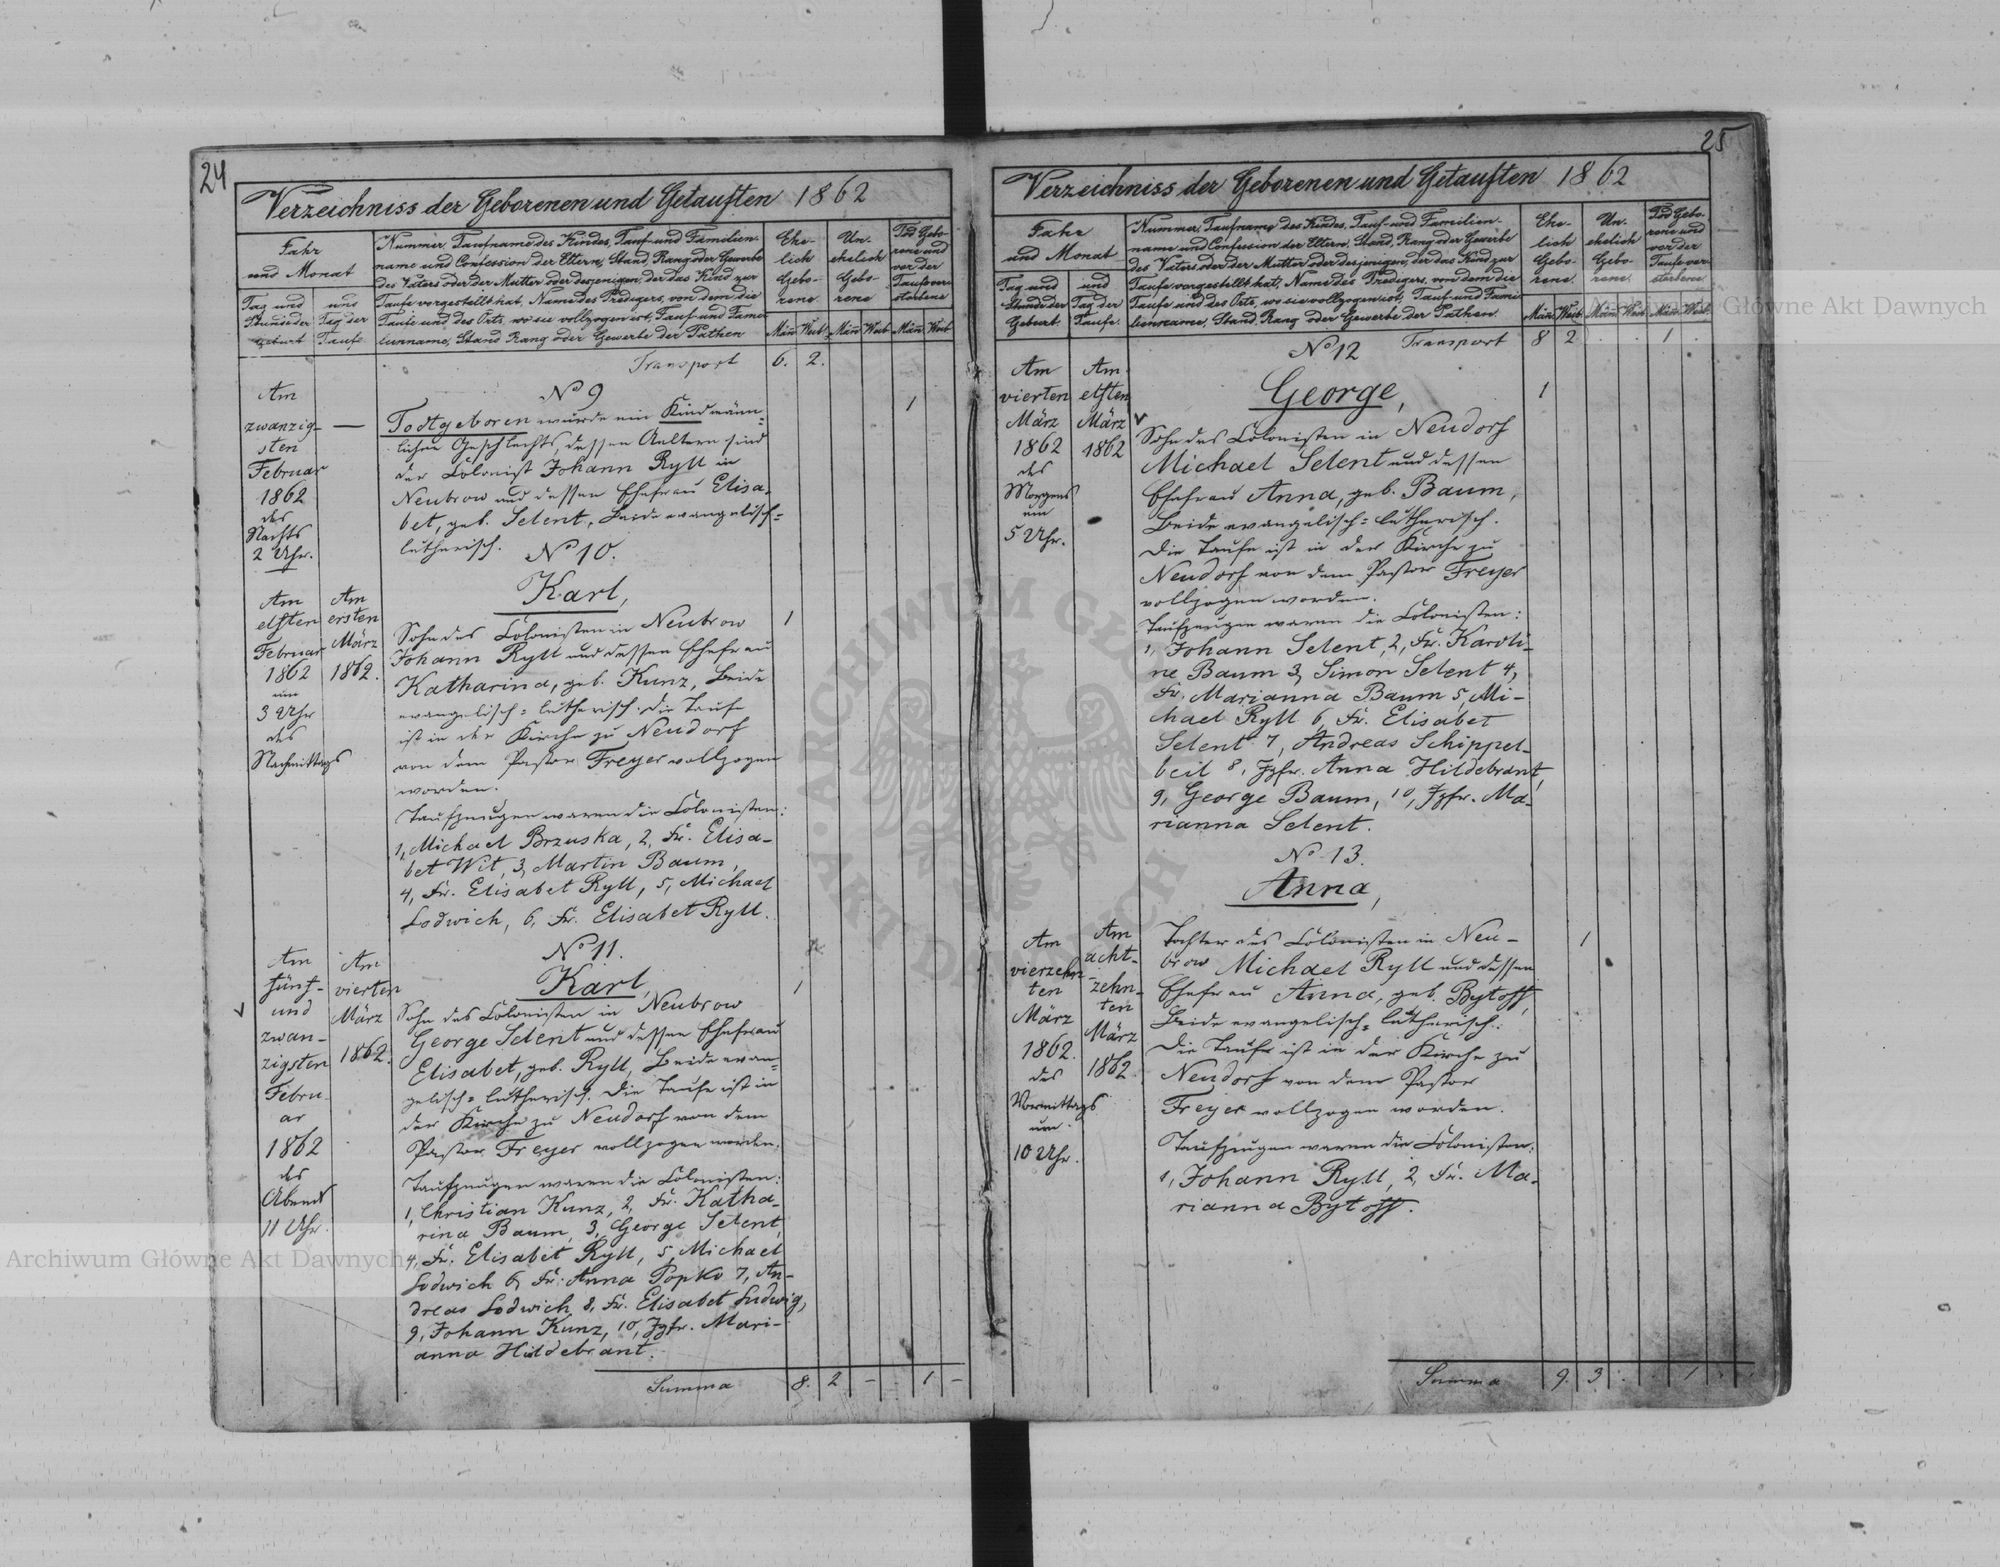 24
Verzeichniss der Geborenen und Getauften 1862
Jahr
und Monat
Tag und
Stunde der
Geburt
und
Tag der
Taufe
Nummer, Taufname des Kindes, Tauf- und Familien-
name und Confession der Eltern, Stand, Rang oder Gewerbe
des Vaters oder der Mutter oder desjenigen, der das Kind zur
Taufe vorgestellt hat, Name des Predigers, von dem die
Taufe und des Orts, wo sie vollzogen ist, Tauf- und Fami-
lienname, Stand Rang oder Gewerbe der Pathen
Ehe-
lich
Gebo-
rene
Un-
ehelich
Gebo-
rene
Tod Gebo-
rene und
vor der
Taufe ver-
storbene
Män Weib Män Weib Män Weib
Transport 6. 2.
Am
zwanzig-
sten
Februar
1862
des
Nachts
2 Uhr.
—
No 9
Todtgeboren wurde ein Kind männ-
lichen Geschlechts, dessen Aeltern sind
der Colonist Johann Ryll in
Neubrow und dessen Ehefrau Elisa-
bet, geb. Selent, Beide evangelisch=
lutherisch.
1
No 10.
Am
elften
Februar
1862
um
3 Uhr
des
Nachmittags
Am
ersten
März
1862.
Karl,
Sohn des Colonisten in Neubrow
Johann Ryll und dessen Ehefrau
Katharina, geb. Kunz, Beide
evangelisch=lutherisch. Die Taufe
ist in der Kirche zu Neudorf
von dem Pastor Freyer vollzogen
worden.
Taufzeugen waren die Colonisten:
1, Michael Brzuska, 2, Fr. Elisa-
bet Wit, 3, Martin Baum,
4, Fr. Elisabet Ryll, 5, Michael
Lodwich, 6, Fr. Elisabet Ryll.
1
No 11.
Am
fünf-
und
zwan-
zigsten
Febru-
ar
1862
des
Abends
11 Uhr.
Am
vierten
März
1862.
Karl,
Sohn des Colonisten in Neubrow
George Selent und dessen Ehefrau
Elisabet, geb. Ryll, Beide evan=
gelisch=lutherisch. Die Taufe ist in
der Kirche zu Neudorf von dem
Pastor Freyer vollzogen worden.
Taufzeugen waren die Colonisten:
1, Christian Kunz, 2, Fr. Katha-
rina Baum, 3, George Selent,
4, Fr. Elisabet Ryll, 5, Michael
Lodwich 6, Fr. Anna Popko 7, An-
dreas Lodwich 8, Fr. Elisabet Ludwig,
9, Johann Kunz, 10, Jgfr. Mari-
anna Hildebrant.
1
Summa 8. 2 - 1 -
25
Verzeichniss der Geborenen und Getauften 1862
Jahr
und Monat
Tag und
Stunde der
Geburt.
und
Tag der
Taufe.
Nummer, Taufname des Kindes, Tauf- und Familien-
name und Confession der Eltern, Stand, Rang oder Gewerbe
des Vaters oder der Mutter oder desjenigen, der das Kind zur
Taufe vorgestellt hat, Name des Predigers, von dem die
Taufe und des Orts, wo sie vollzogen ist, Tauf- und Fami-
lienname, Stand, Rang oder Gewerbe der Pathen.
Ehe-
lich
Gebo-
rene.
Un-
ehelich
Gebo-
rene.
Tod Gebo-
rene und
vor der
Taufe ver-
storbene.
Män Weib Män Weib Män Weib
Transport 8 2 1
No 12
Am
vierten
März
1862
des
Morgens
um
5 Uhr.
Am
elften
März
1862
George,
Sohn des Colonisten in Neudorf
Michael Selent und dessen
Ehefrau Anna, geb. Baum,
Beide evangelisch=lutherisch.
Die Taufe ist in der Kirche zu
Neudorf von dem Pastor Freyer
vollzogen worden.
Taufzeugen waren die Colonisten:
1, Johann Selent, 2, Fr. Karoli-
ne Baum 3, Simon Selent 4,
Fr. Marianna Baum 5, Mi-
chael Ryll 6, Fr. Elisabet
Selent 7, Andreas Schippel-
beil 8, Jgfr. Anna Hildebrant,
9, George Baum, 10, Jgfr. Ma-
rianna Selent.
1
No 13.
Am
vierzehn-
ten
März
1862.
des
Vormittags
um
10 Uhr.
Am
acht-
zehn-
ten
März
1862
Anna,
Tochter des Colonisten in Neu-
brow Michael Ryll und dessen
Ehefrau Anna, geb. Bytoff,
Beide evangelisch=lutherisch.
Die Taufe ist in der Kirche zu
Neudorf von dem Pastor
Freyer vollzogen worden.
Taufzeugen waren die Colonisten:
1, Johann Ryll, 2, Fr. Ma-
rianna Bytoff.
1
Summa 9. 3. 1
Archiwum Główne Akt Dawnych
Archiwum Główne Akt Dawnych